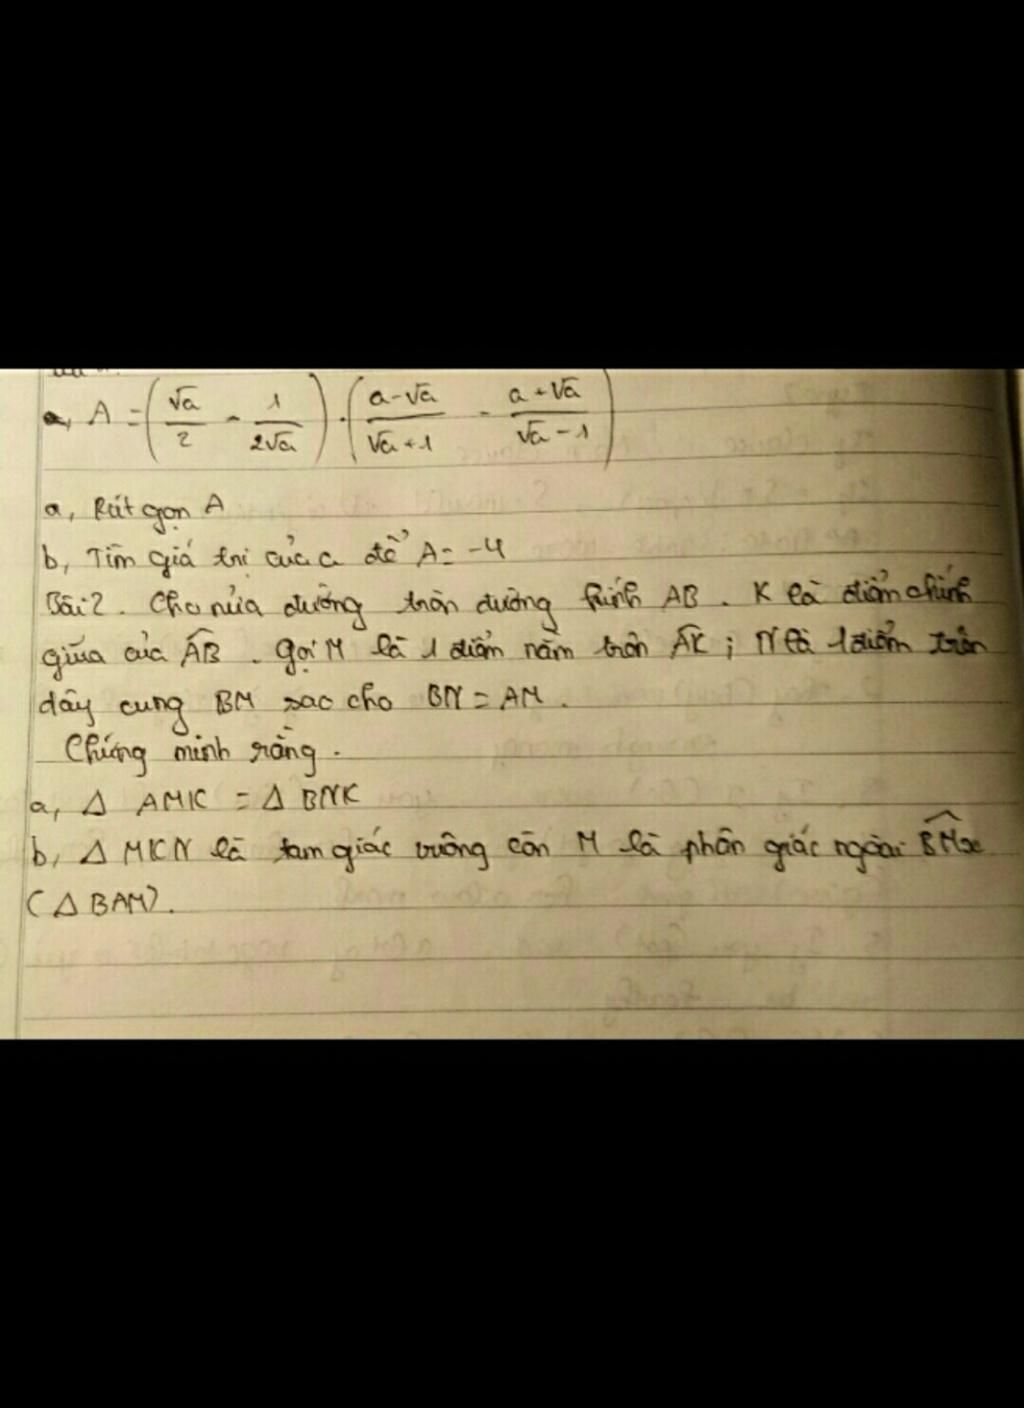 a, A = (√a/2 - 1/2√a) . (a-√a/√a+1 - a+√a/√a-1)
a, Rút gọn A
b, Tìm giá trị của a để A = -4
Bài 2. Cho nửa đường tròn đường kính AB. K là điểm chính
giữa của AB. Gọi M là 1 điểm nằm trên AK; N là 1 điểm trên
dây cung BM sao cho BN = AM.
Chứng minh rằng.
a, Δ AMK = Δ BNK
b, Δ MKN là tam giác vuông cân M là phân giác ngoài BMx
(Δ BAM).